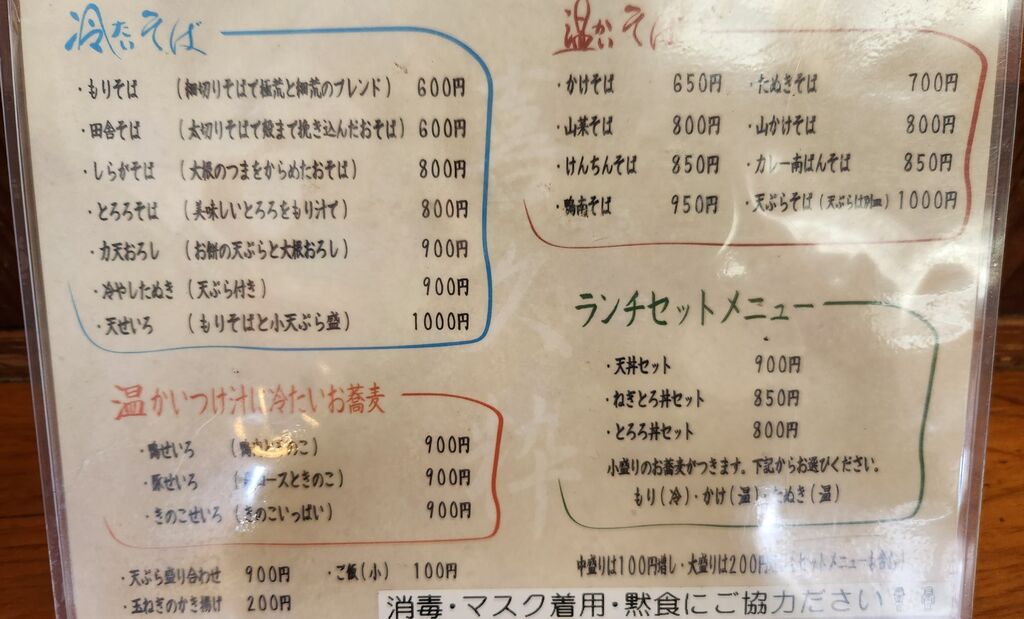 冷たいそば
・もりそば (細切りそばで極荒と細荒のブレンド) 600円
・田舎そば (太切りそばで殻まで挽き込んだおそば) 600円
・しらがそば (大根のつまをからめたおそば) 800円
・とろろそば (美味しいとろろをもり汁で) 800円
・力天おろし (お餅の天ぷらと大根おろし) 900円
・冷やしたぬき (天ぷら付き) 900円
・天せいろ (もりそばと小天ぷら盛) 1000円
温かいつけ汁に冷たいお蕎麦
・鴨せいろ きのこ) 900円
・豚せいろ ロースときのこ) 900円
・きのこせいろ (きのこいっぱい) 900円
・天ぷら盛り合わせ 900円 ・ご飯(小) 100円
・玉ねぎのかき揚げ 200円
温かいそば
・かけそば 650円 ・たぬきそば 700円
・山菜そば 800円 ・山かけそば 800円
・けんちんそば 850円 ・カレー南ばんそば 850円
・鴨南そば 950円 ・天ぷらそば (天ぷらは別皿) 1000円
ランチセットメニュー
・天丼セット 900円
・ねぎとろ丼セット 850円
・とろろ丼セット 800円
小盛りのお蕎麦がつきます。下記からお選びください。
もり(冷)・かけ(温)・たぬき(温)
中盛りは100円増し・大盛りは200円 セットメニューも
消毒・マスク着用・黙食にご協力ださい